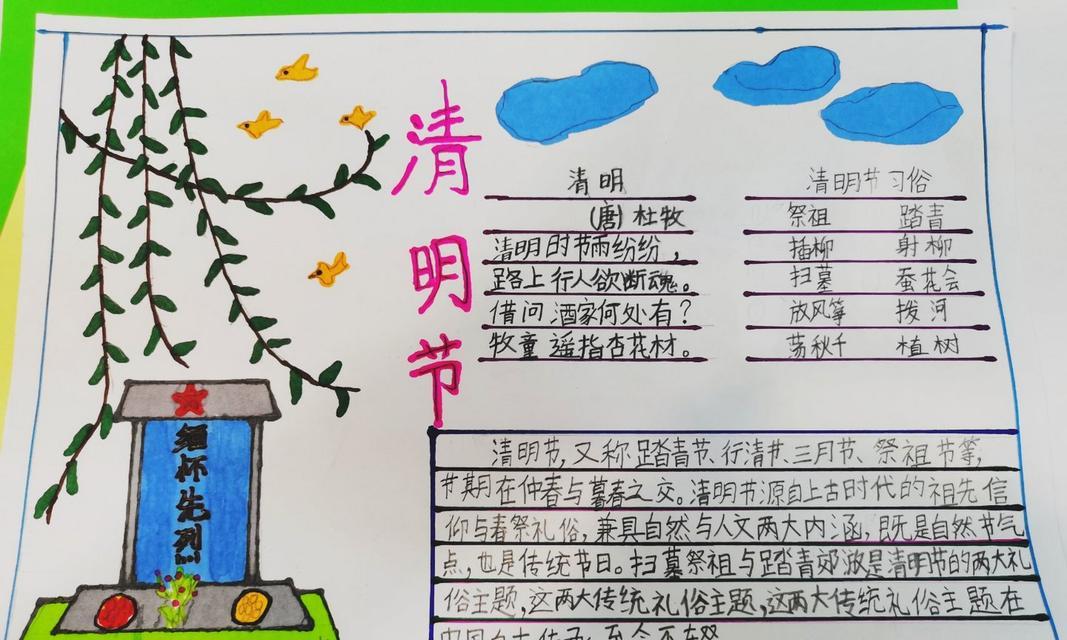 清明节
缅怀先烈
清明
(唐) 杜牧
清明时节雨纷纷，
路上行人欲断魂。
借问酒家何处有？
牧童遥指杏花材。
清明节习俗
祭祖 踏青
插柳 射柳
扫墓 蚕花会
放风筝 拨河
荡秋千 植树
清明节，又称踏青节、行清节、三月节、祭祖节等，
节期在仲春与暮春之交。清明节源自上古时代的祖先信
仰与春祭礼俗，兼具自然与人文两大内涵，既是自然节气
点，也是传统节日。扫墓祭祖与踏青郊游是清明节的两大礼
俗主题，这两大传统礼俗主题，这两大传统礼俗主题在